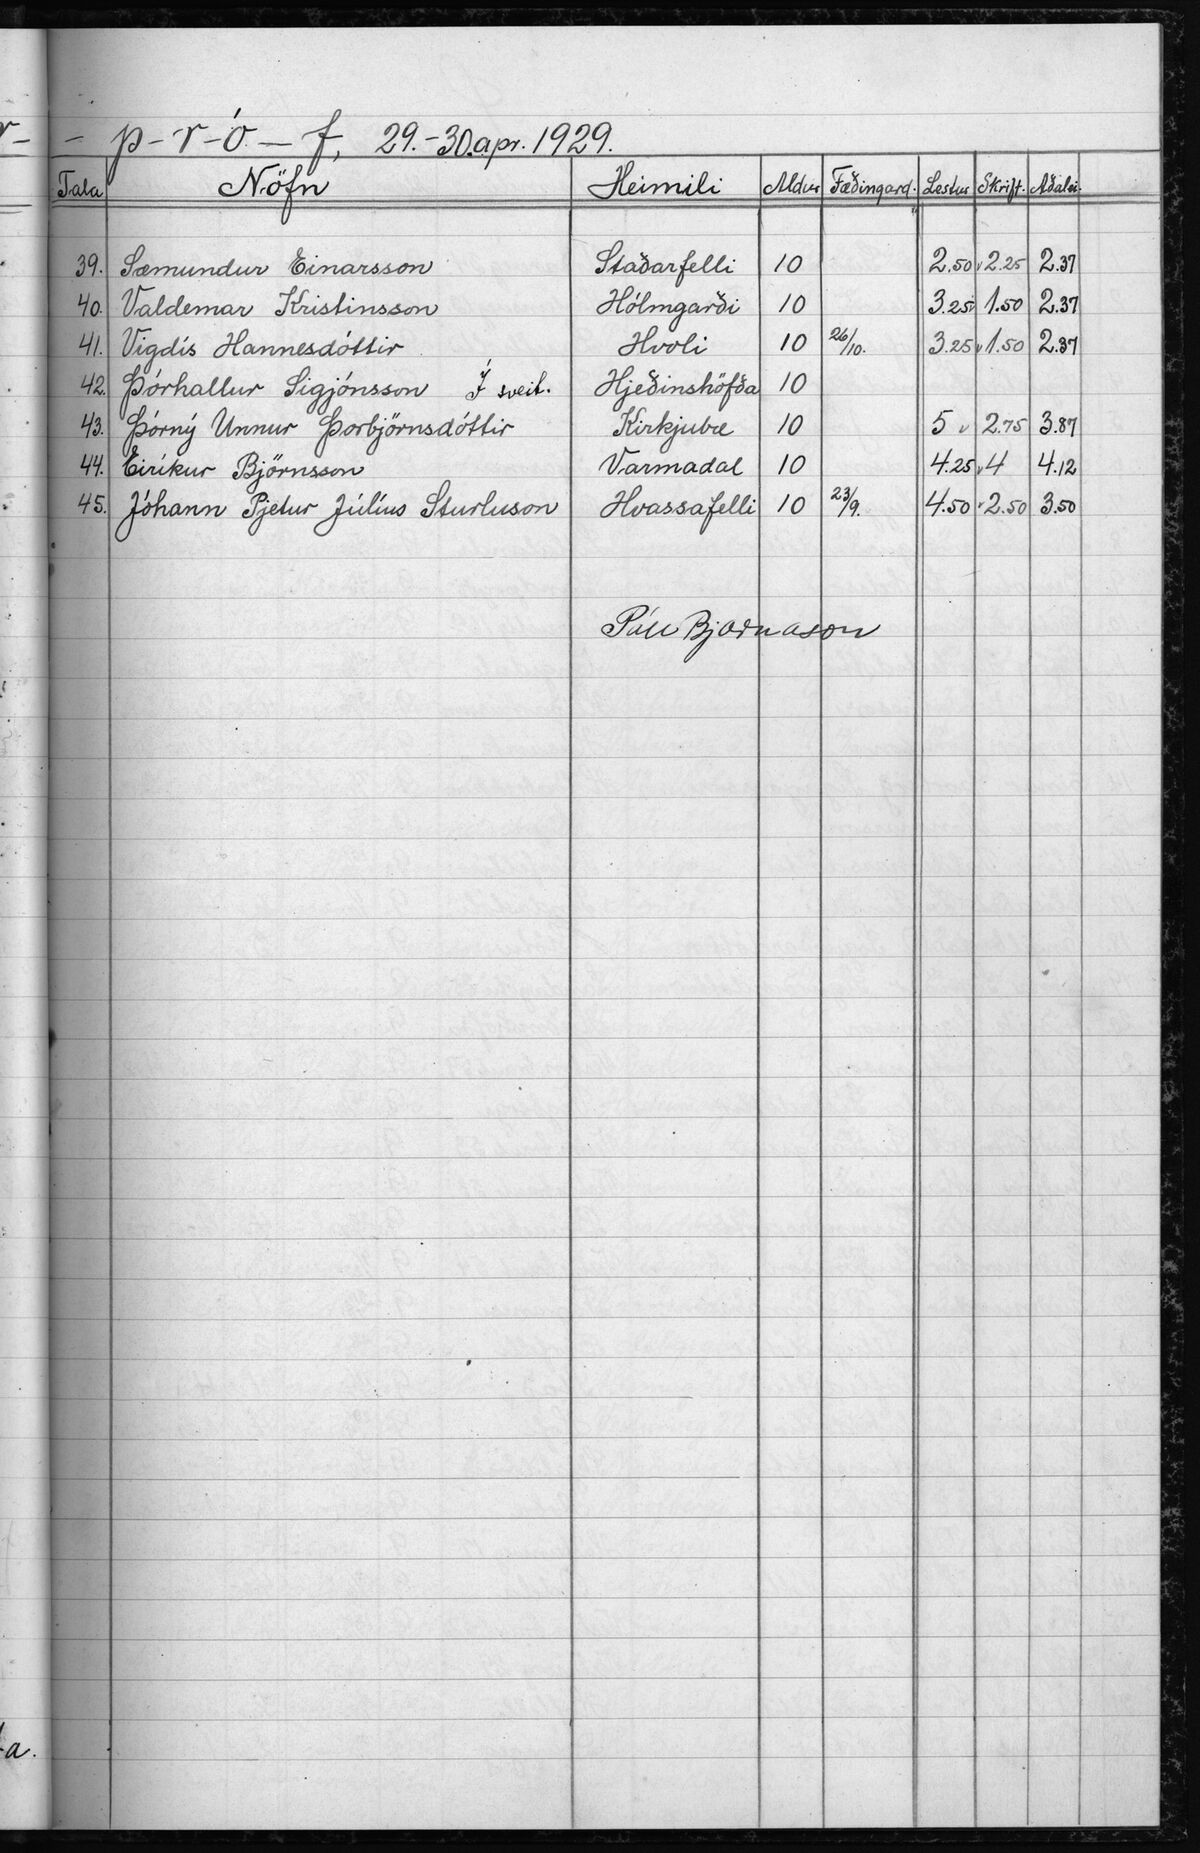 - p-r-ó-f, 29.-30.apr. 1929.
Tala Nöfn Heimili Aldur Fæðingard. Lestur Skrift. Aðalei.
39. Sæmundur Einarsson Staðarfelli 10 2.50 2.25 2.37
40. Valdemar Kristinsson Hólmgarði 10 3.25 1.50 2.37
41. Vigdís Hannesdóttir Hvoli 10 26/10. 3.25 1.50 2.37
42. Þórhallur Sigjónsson Í sveit. Hjeðinshöfða 10
43. Þórný Unnur Þorbjörnsdóttir Kirkjubæ 10 5 2.75 3.87
44. Eiríkur Björnsson Varmadal 10 4.25 4 4.12
45. Jóhann Pjetur Júlíus Sturluson Hvassafelli 10 23/9. 4.50 2.50 3.50
Páll Bjarnason
a.